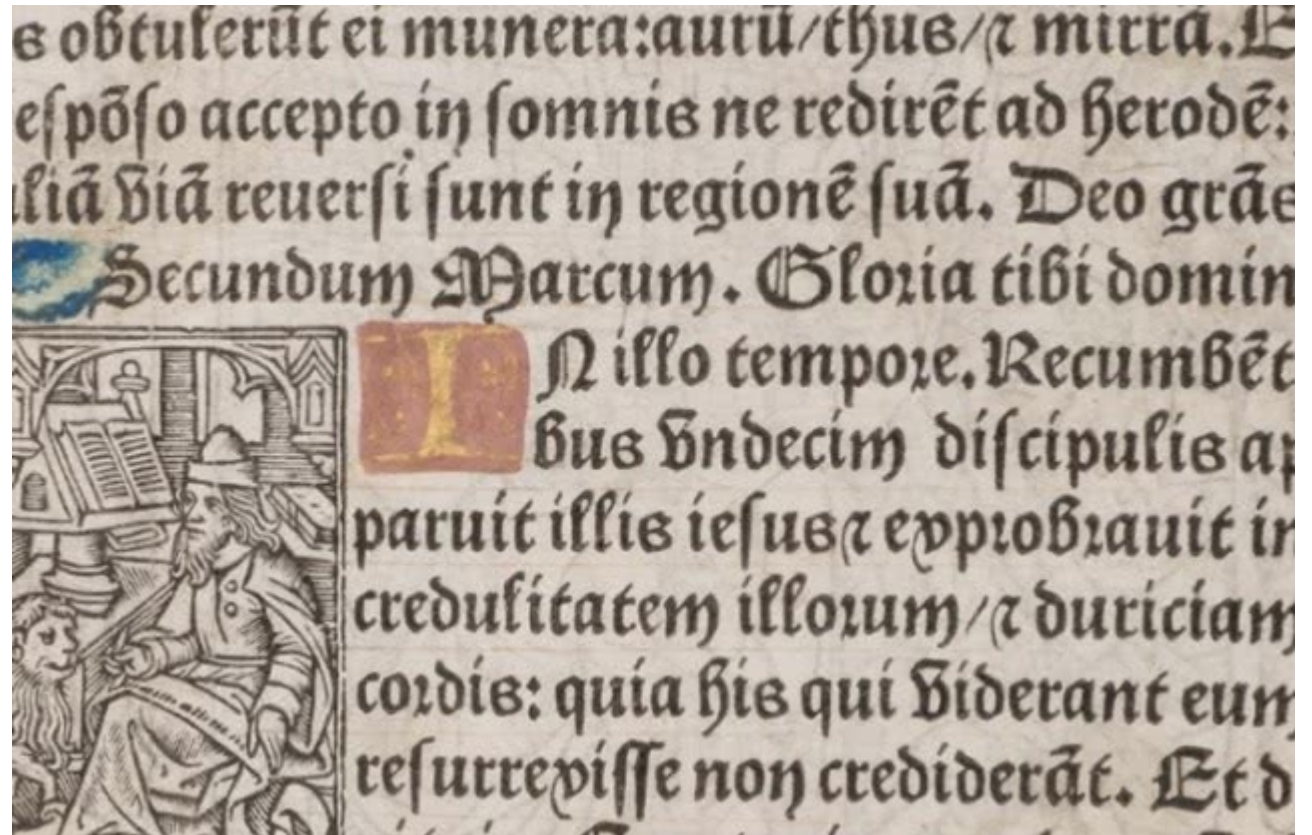 s obtulerūt ei munera:aurū/thus/⁊ mirrā. E
espōso accepto in somnis ne redirēt ad herodē:
aliā viā reuersi sunt in regionē suā. Deo grās
Secundum Marcum. Gloria tibi domin
IN illo tempore. Recumbēt
bus vndecim discipulis ap
paruit illis iesus ⁊ exprobrauit in
credulitatem illorum/⁊ duriciam
cordis: quia his qui viderant eum
resurrexisse non crediderāt. Et d